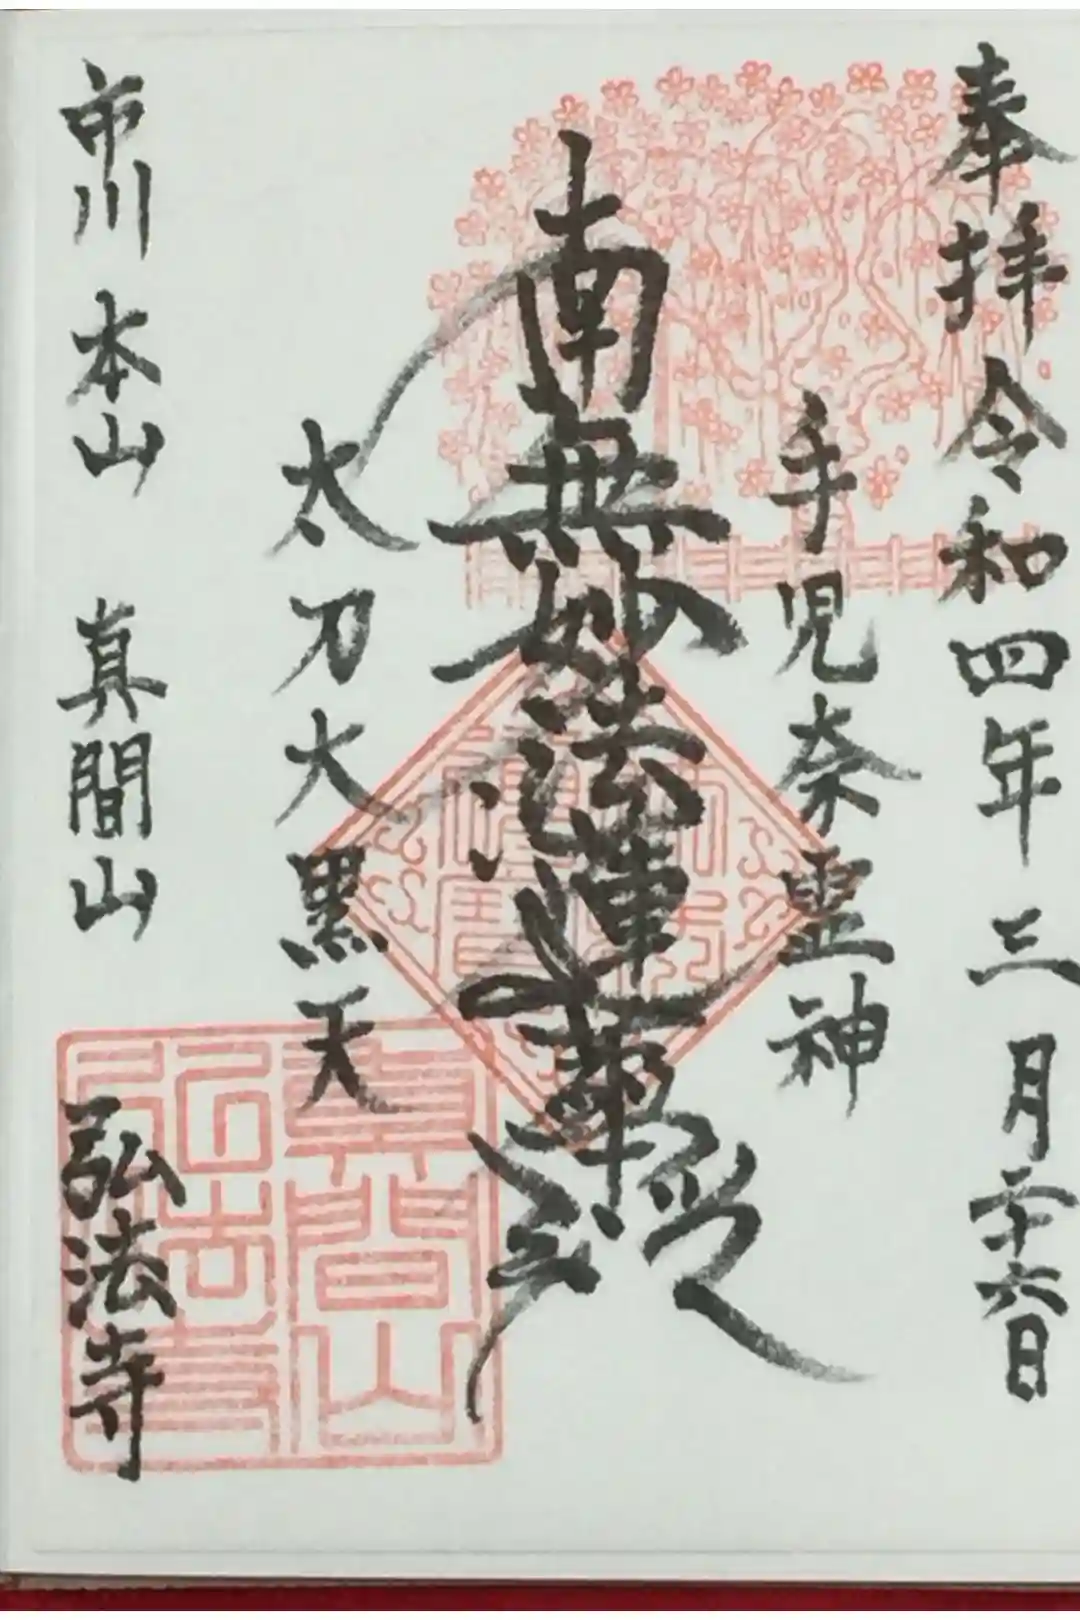 奉拝 令和四年 三月二十六日
手児奈霊神
南無妙法蓮華経
太刀大黒天
市川 本山 真間山 弘法寺
真間山
弘法寺